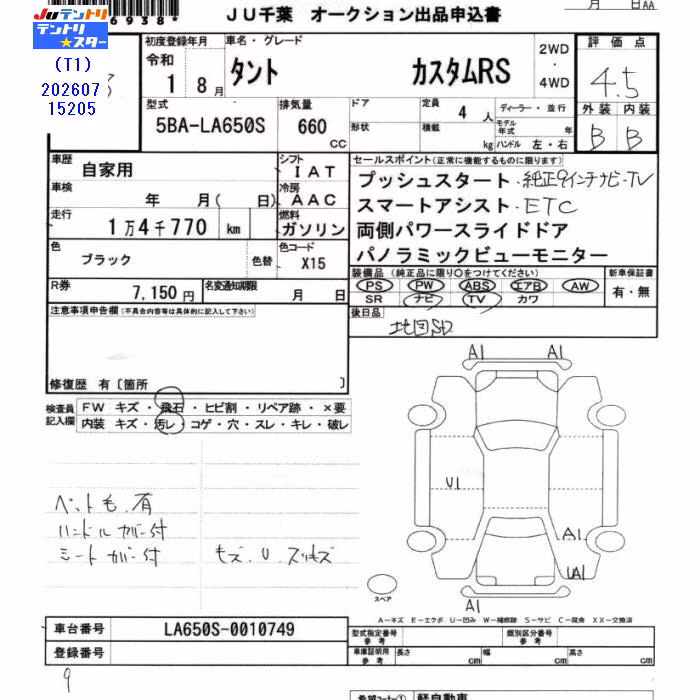 6938*
JU千葉 オークション出品申込書
月 日AA
JUテントリ
テントリ
★スター
(T1)
202607
15205
初度登録年月
令和
1 8月
車名・グレード
タント カスタムRS
2WD
・
4WD
評価点
4.5
外装 内装
B B
型式
5BA-LA650S
排気量
660
CC
ドア
形状
定員
4 人
積載
kg
ディーラー・並行
モデル年式 年
ハンドル 左・右
車歴
自家用
シフト
IAT
車検
年 月( 日)
冷房
AAC
走行
1万4千770 km
燃料
ガソリン
色
ブラック
色替
色コード
X15
R券
7,150円
名変通知期限
月 日
セールスポイント(正常に機能するものに限ります)
プッシュスタート・純正9インチナビ・TV
スマートアシスト・ETC
両側パワースライドドア
パノラミックビューモニター
装備品(純正品に限り○をつけてください)
PS PW ABS エアB AW
SR ナビ TV カワ
新車保証書
有・無
後日品
地図SD
注意事項申告欄(不具合内容等は具体的に記入して下さい)
修復歴 有〔箇所 〕
検査員
記入欄
FW キズ・飛石・ヒビ割・リペア跡・×要
内装 キズ・汚レ・コゲ・穴・スレ・キレ・破レ
ペット毛有
ハンドルカバー付
シートカバー付
モズ.U.スリキズ
A1 A1
U1
A1
UA1
A1
スペア
A-キズ E-エクボ U-凹み W-補修跡 S-サビ C-腐食 XX-交換済
車台番号
LA650S-0010749
登録番号
型式指定番号
参考
類別区分番号
参考
車庫証明用
参考
長さ cm
幅 cm
高さ cm
9
希望コーナー①
軽自動車